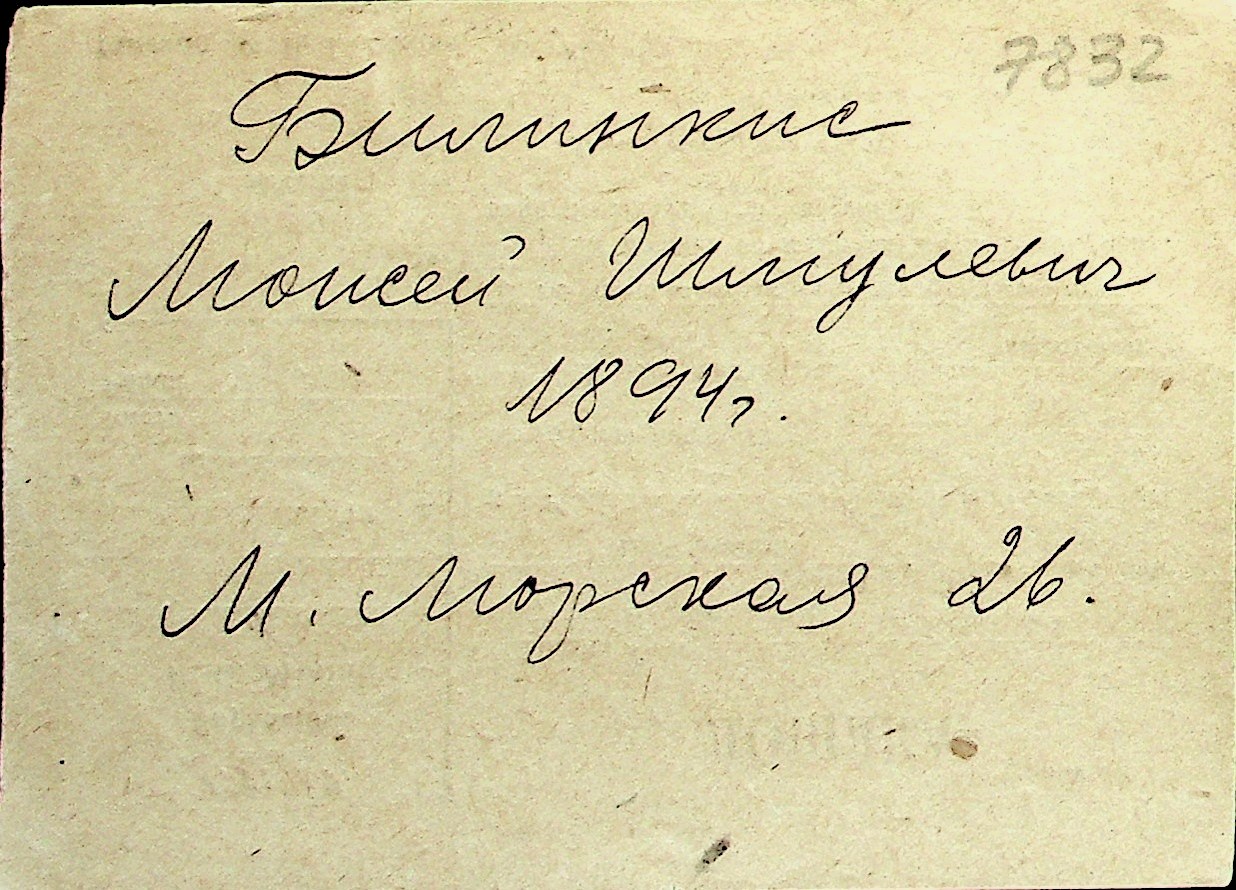 7832
Билинкис
Моисей Шмулевич
1894г.
М. Морская 26.